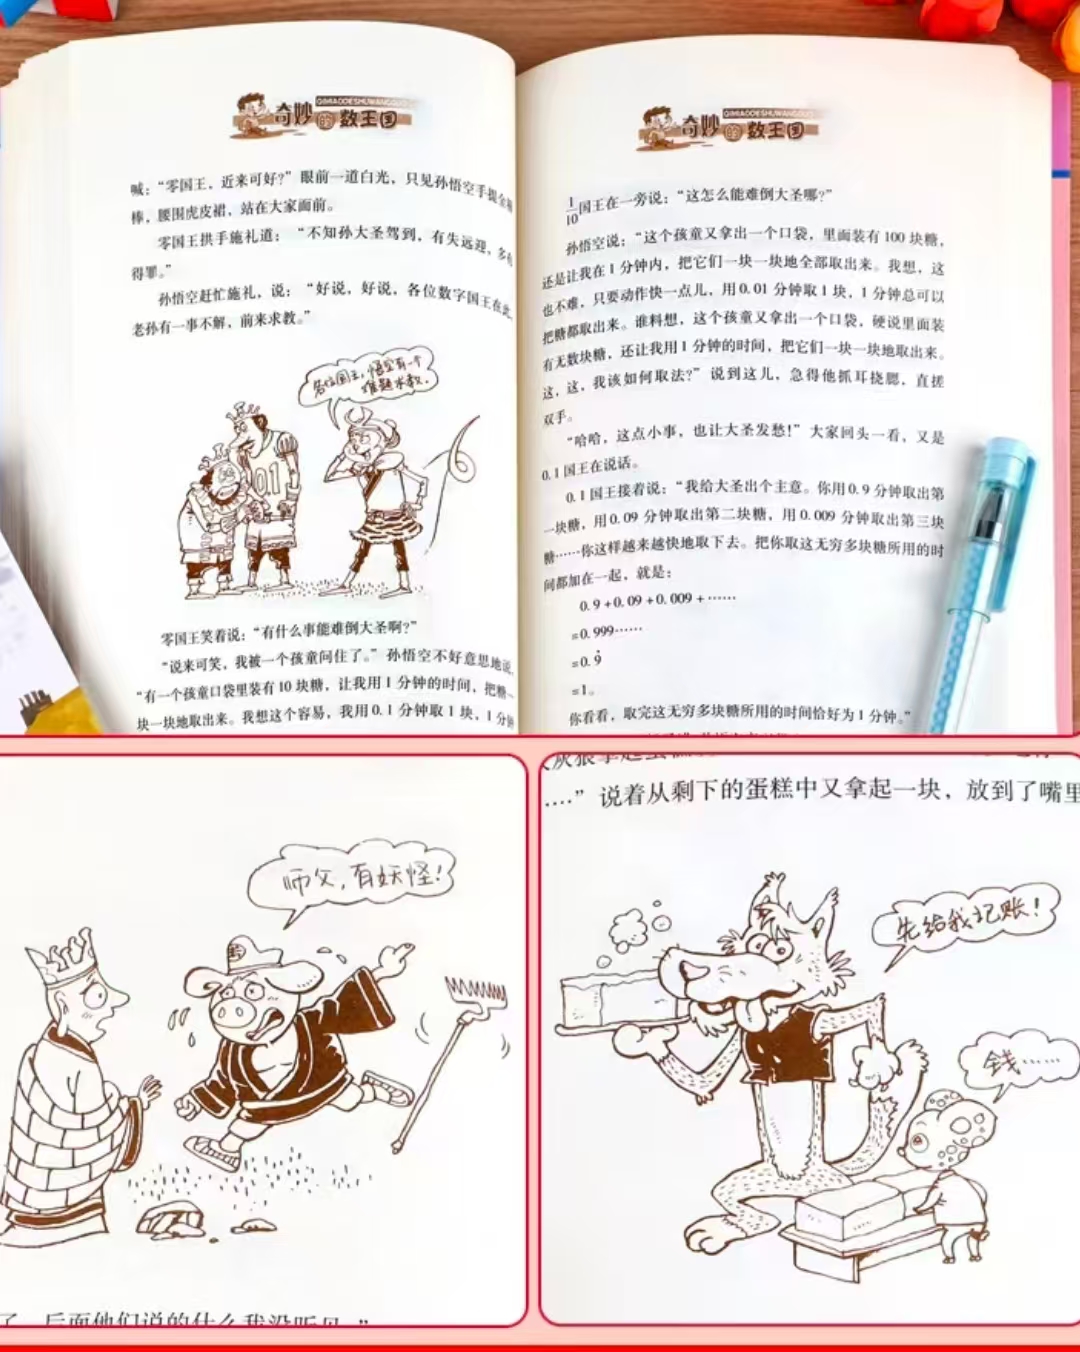 QIMIAODESHUWANGGUO
奇妙的数王国
喊：“零国王，近来可好？”眼前一道白光，只见孙悟空手提金箍
棒，腰围虎皮裙，站在大家面前。
零国王拱手施礼道：“不知孙大圣驾到，有失远迎，多有
得罪。”
孙悟空赶忙施礼，说：“好说，好说，各位数字国王在此，
老孙有一事不解，前来求教。”
各位国王，悟空有一个
难题求教．
01
零国王笑着说：“有什么事能难倒大圣啊？”
“说来可笑，我被一个孩童问住了。”孙悟空不好意思地说，
“有一个孩童口袋里装有10块糖，让我用1分钟的时间，把糖一
块一块地取出来。我想这个容易，我用0.1分钟取1块，1分钟
QIMIAODESHUWANGGUO
奇妙的数王国
1/10国王在一旁说：“这怎么能难倒大圣哪？”
孙悟空说：“这个孩童又拿出一个口袋，里面装有100块糖，
还是让我在1分钟内，把它们一块一块地全部取出来。我想，这
也不难，只要动作快一点儿，用0.01分钟取1块，1分钟总可以
把糖都取出来。谁料想，这个孩童又拿出一个口袋，硬说里面装
有无数块糖，还让我用1分钟的时间，把它们一块一块地取出来。
这，这，我该如何取法？”说到这儿，急得他抓耳挠腮，直搓
双手。
“哈哈，这点小事，也让大圣发愁！”大家回头一看，又是
0.1国王在说话。
0.1国王接着说：“我给大圣出个主意。你用0.9分钟取出第
一块糖，用0.09分钟取出第二块糖，用0.009分钟取出第三块
糖……你这样越来越快地取下去。把你取这无穷多块糖所用的时
间都加在一起，就是：
0.9+0.09+0.009+……
=0.999……
=0.9̇
=1。
你看看，取完这无穷多块糖所用的时间恰好为1分钟。”
师父，有妖怪！
了，后面他们说的什么我没听见。”
……”说着从剩下的蛋糕中又拿起一块，放到了嘴里
先给我记账！
钱……